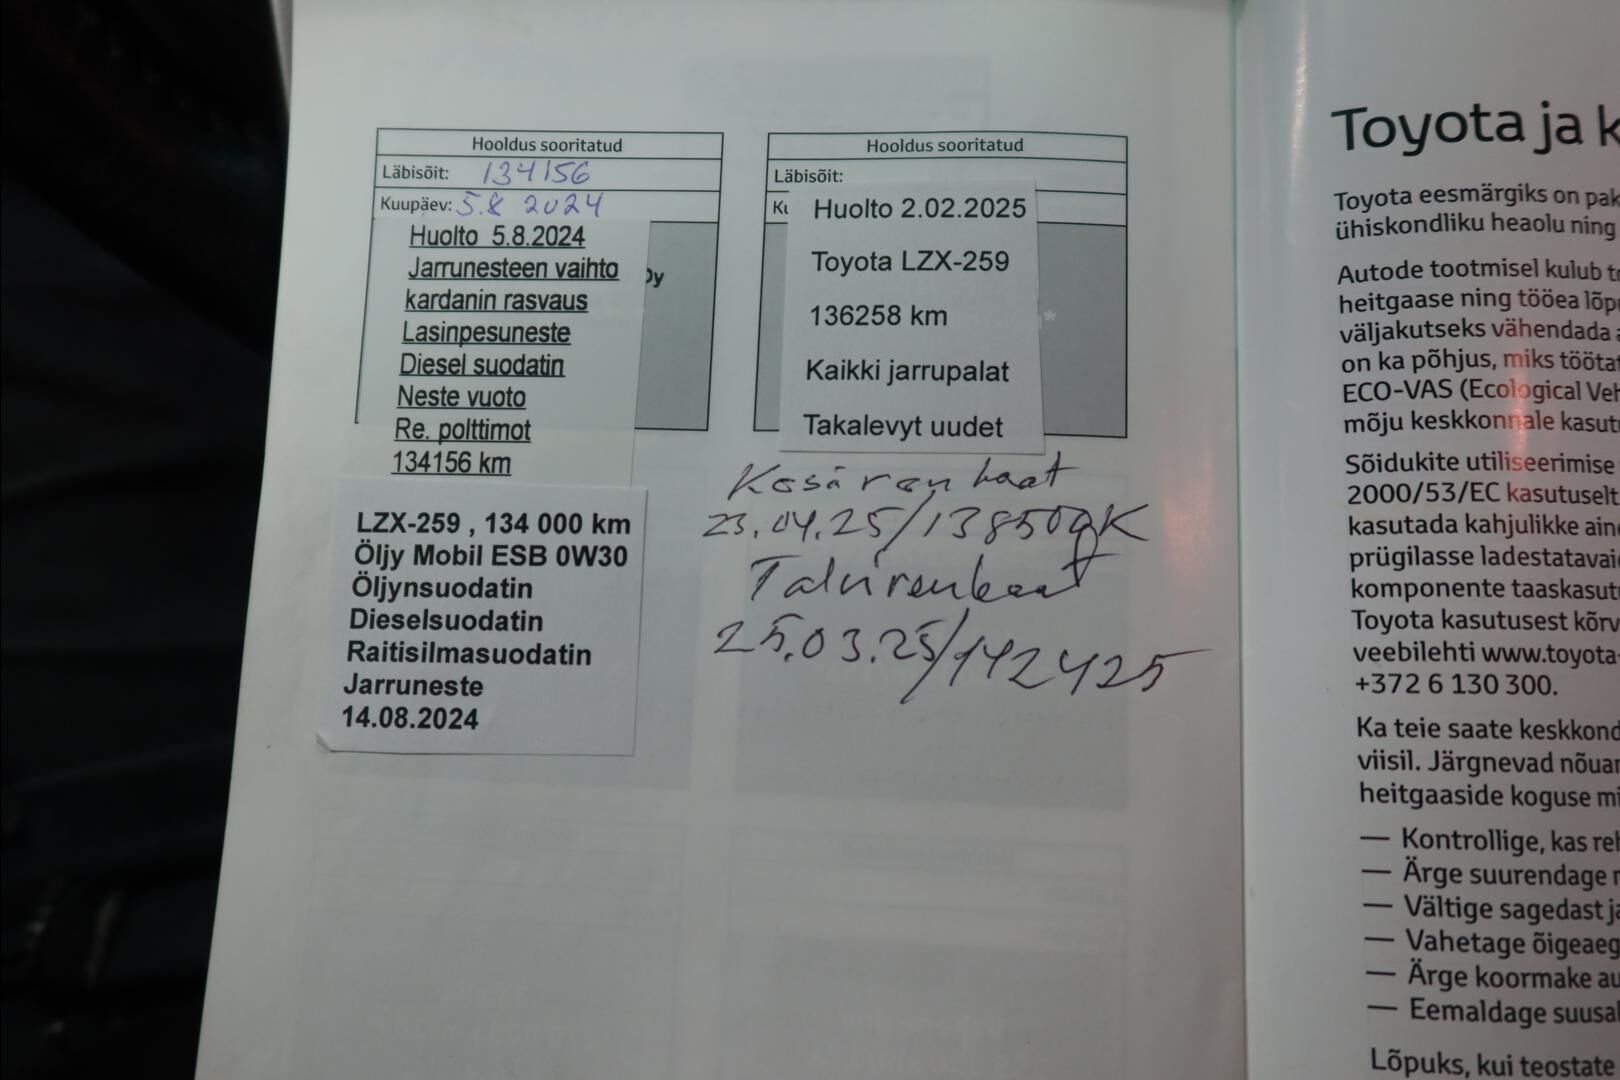 Hooldus sooritatud
Läbisõit: 134156
Kuupäev: 5.8 2024
Huolto 5.8.2024
Jarrunesteen vaihto
kardanin rasvaus
Lasinpesuneste
Diesel suodatin
Neste vuoto
Re. polttimot
134156 km
LZX-259 , 134 000 km
Öljy Mobil ESB 0W30
Öljynsuodatin
Dieselsuodatin
Raitisilmasuodatin
Jarruneste
14.08.2024
Hooldus sooritatud
Läbisõit:
Huolto 2.02.2025
Toyota LZX-259
136258 km
Kaikki jarrupalat
Takalevyt uudet
Kesärenkaat
23.04.25/138509K
Talvirenkaat
25.03.25/142425
Toyota ja k
Toyota eesmärgiks on pak
ühiskondliku heaolu ning
Autode tootmisel kulub
heitgaase ning tööea lõp
väljakutseks vähendada
on ka põhjus, miks töötat
ECO-VAS (Ecological Veh
mõju keskkonnale kasut
Sõidukite utiliseerimise
2000/53/EC kasutuselt
kasutada kahjulikke aine
prügilasse ladestatavai
komponente taaskasut
Toyota kasutusest kõrv
veebilehti www.toyota-
+372 6 130 300.
Ka teie saate keskkond
viisil. Järgnevad nõuan
heitgaaside koguse mi
— Kontrollige, kas reh
— Ärge suurendage
— Vältige sagedast ja
— Vahetage õigeaeg
— Ärge koormake au
— Eemaldage suusa
Lõpuks, kui teostate